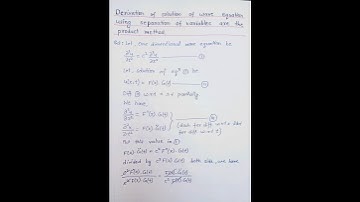 Derivation of solution of wave equation
using separation of variables are the
product method
Sol:- Let, one dimensional wave equation be
∂²u/∂t² = c² ∂²u/∂x² — ①
Let, solution of eqⁿ ① be
u(x,t) = F(x).G(t)
Diff ② w.r.t x & t partially
We have,
∂²u/∂x² = F''(x).G(t)
∂²u/∂t² = F(x).G̈(t)
Put this value in ①
F(x).G̈(t) = c² F''(x).G(t)
divided by c² F(x).G(t) both side, we have